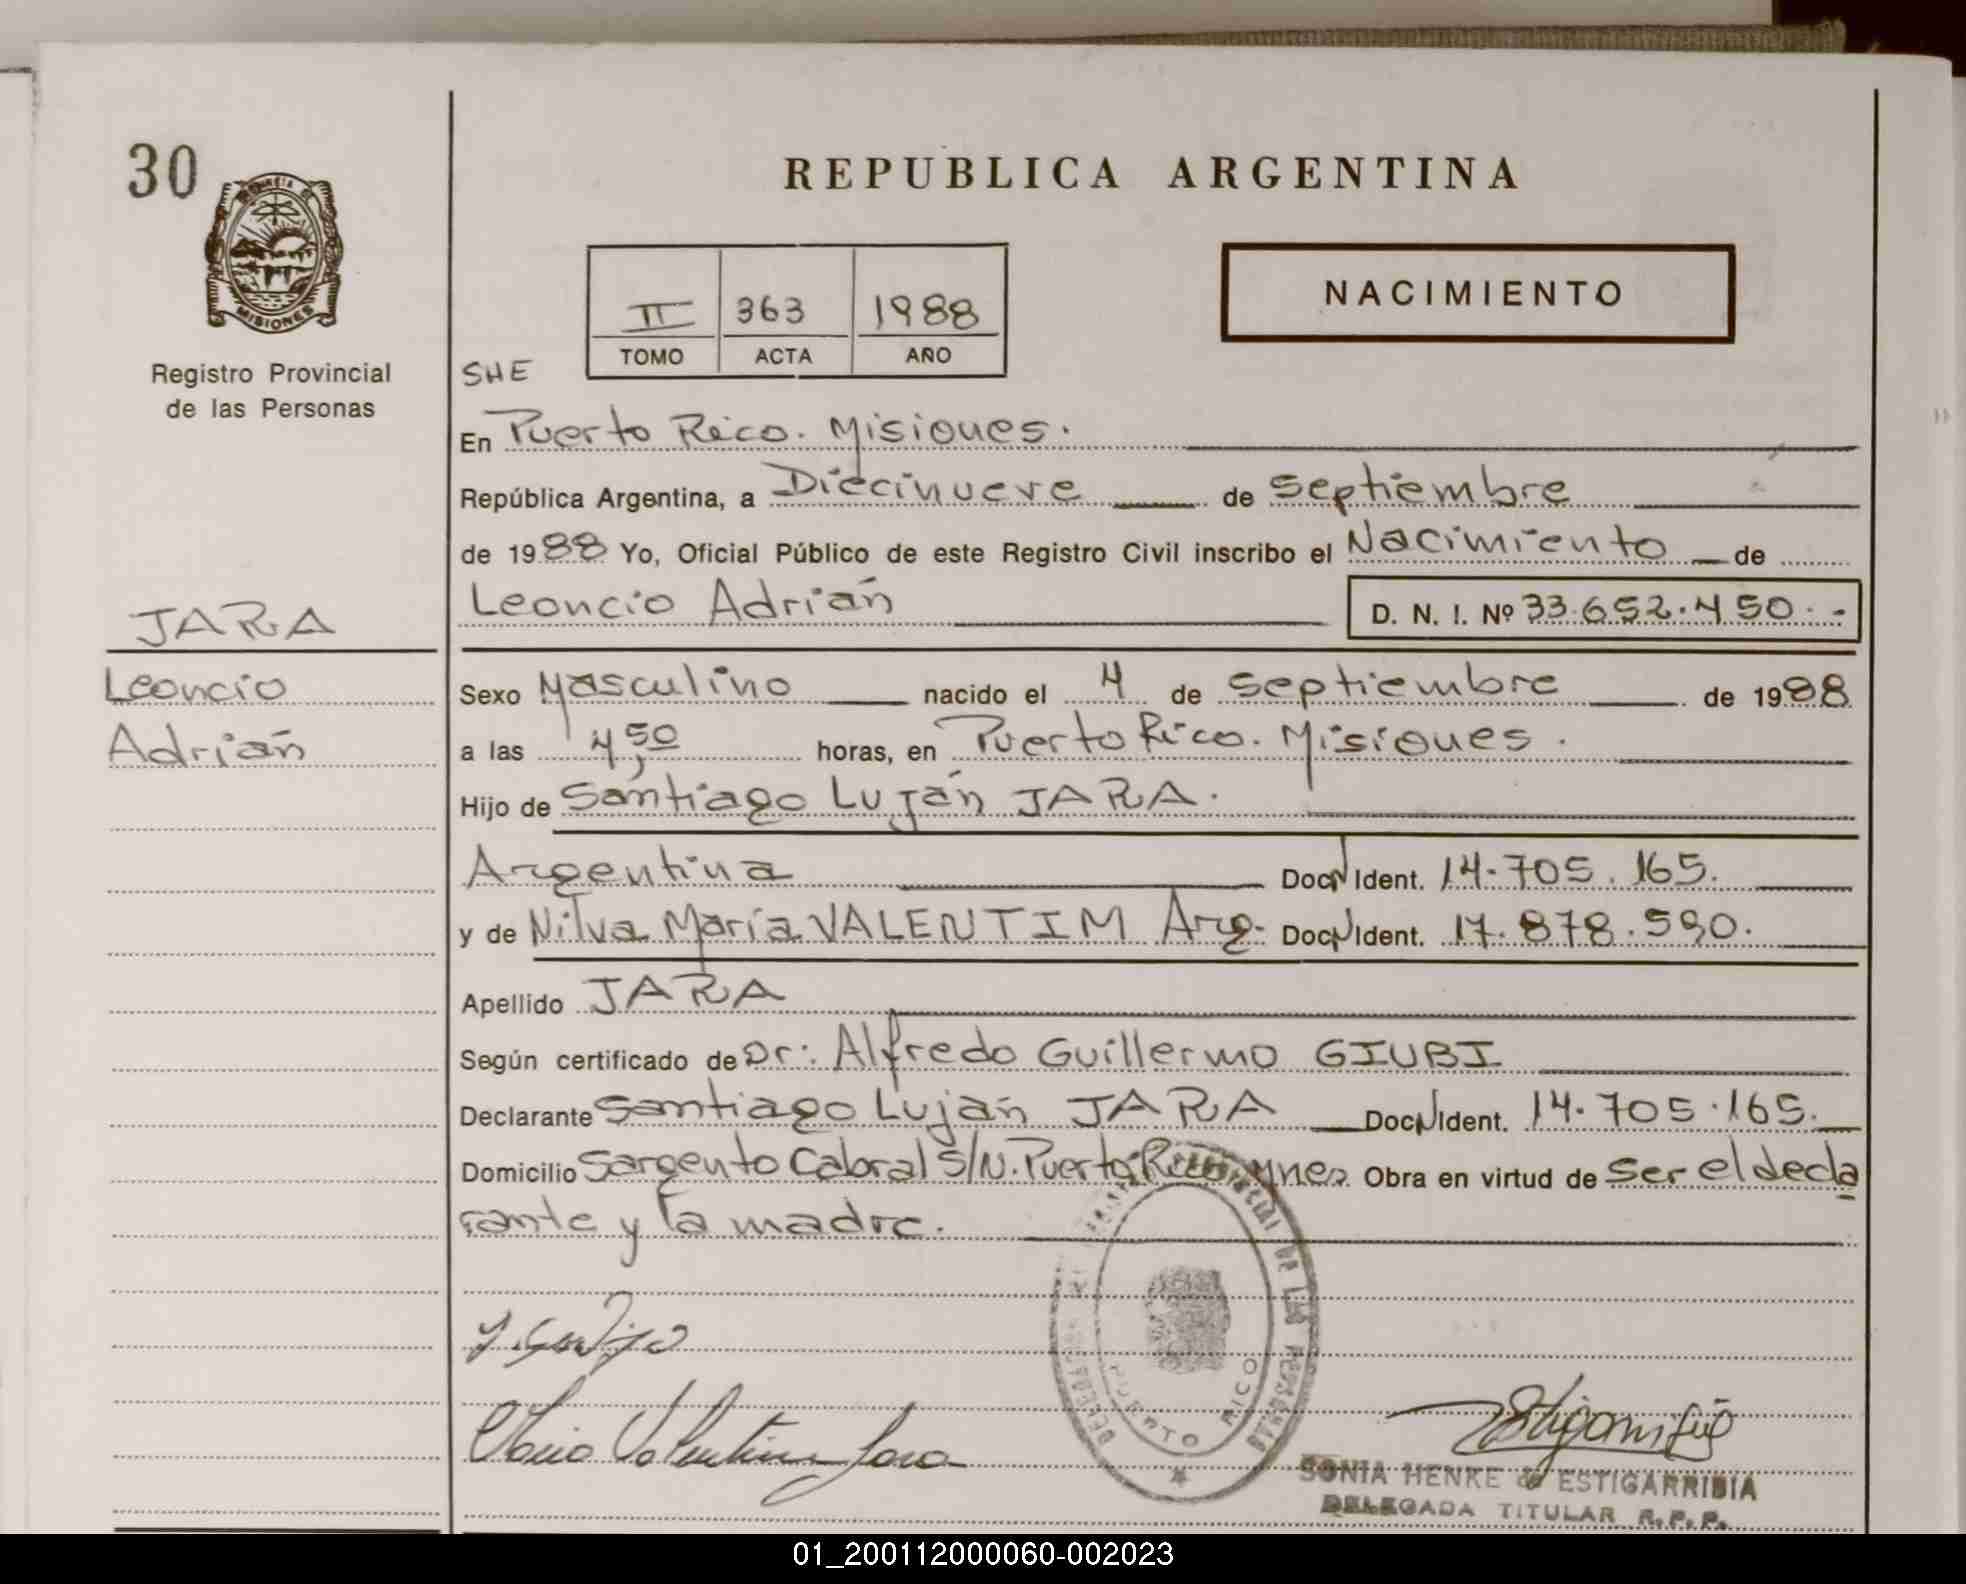 30
MISIONES
Registro Provincial
de las Personas
REPUBLICA ARGENTINA
NACIMIENTO
II 363 1988
TOMO ACTA AÑO
SHE
En Puerto Rico. Misiones.
República Argentina, a Diecinueve de Septiembre
de 1988 Yo, Oficial Público de este Registro Civil inscribo el Nacimiento de
Leoncio Adrián D. N. I. Nº 33.652.450.-
JARA
Leoncio
Adrián
Sexo Masculino nacido el 4 de Septiembre de 1988
a las 4,50 horas, en Puerto Rico. Misiones.
Hijo de Santiago Luján JARA.
Argentina Doc. N Ident. 14.705.165.
y de Nilva María VALENTIM Arg. Doc. N Ident. 17.878.590.
Apellido JARA
Según certificado de Dr: Alfredo Guillermo GIUBI
Declarante Santiago Luján JARA Doc. N Ident. 14.705.165.
Domicilio Sargento Cabral S/N. Puerto Rico Mnes. Obra en virtud de Ser el decla
rante y la madre.
PROVINCIAL DE LAS PERSONAS
PUERTO RICO
SONIA HENKE de ESTIGARRIBIA
DELEGADA TITULAR R.P.P.
01_200112000060-002023